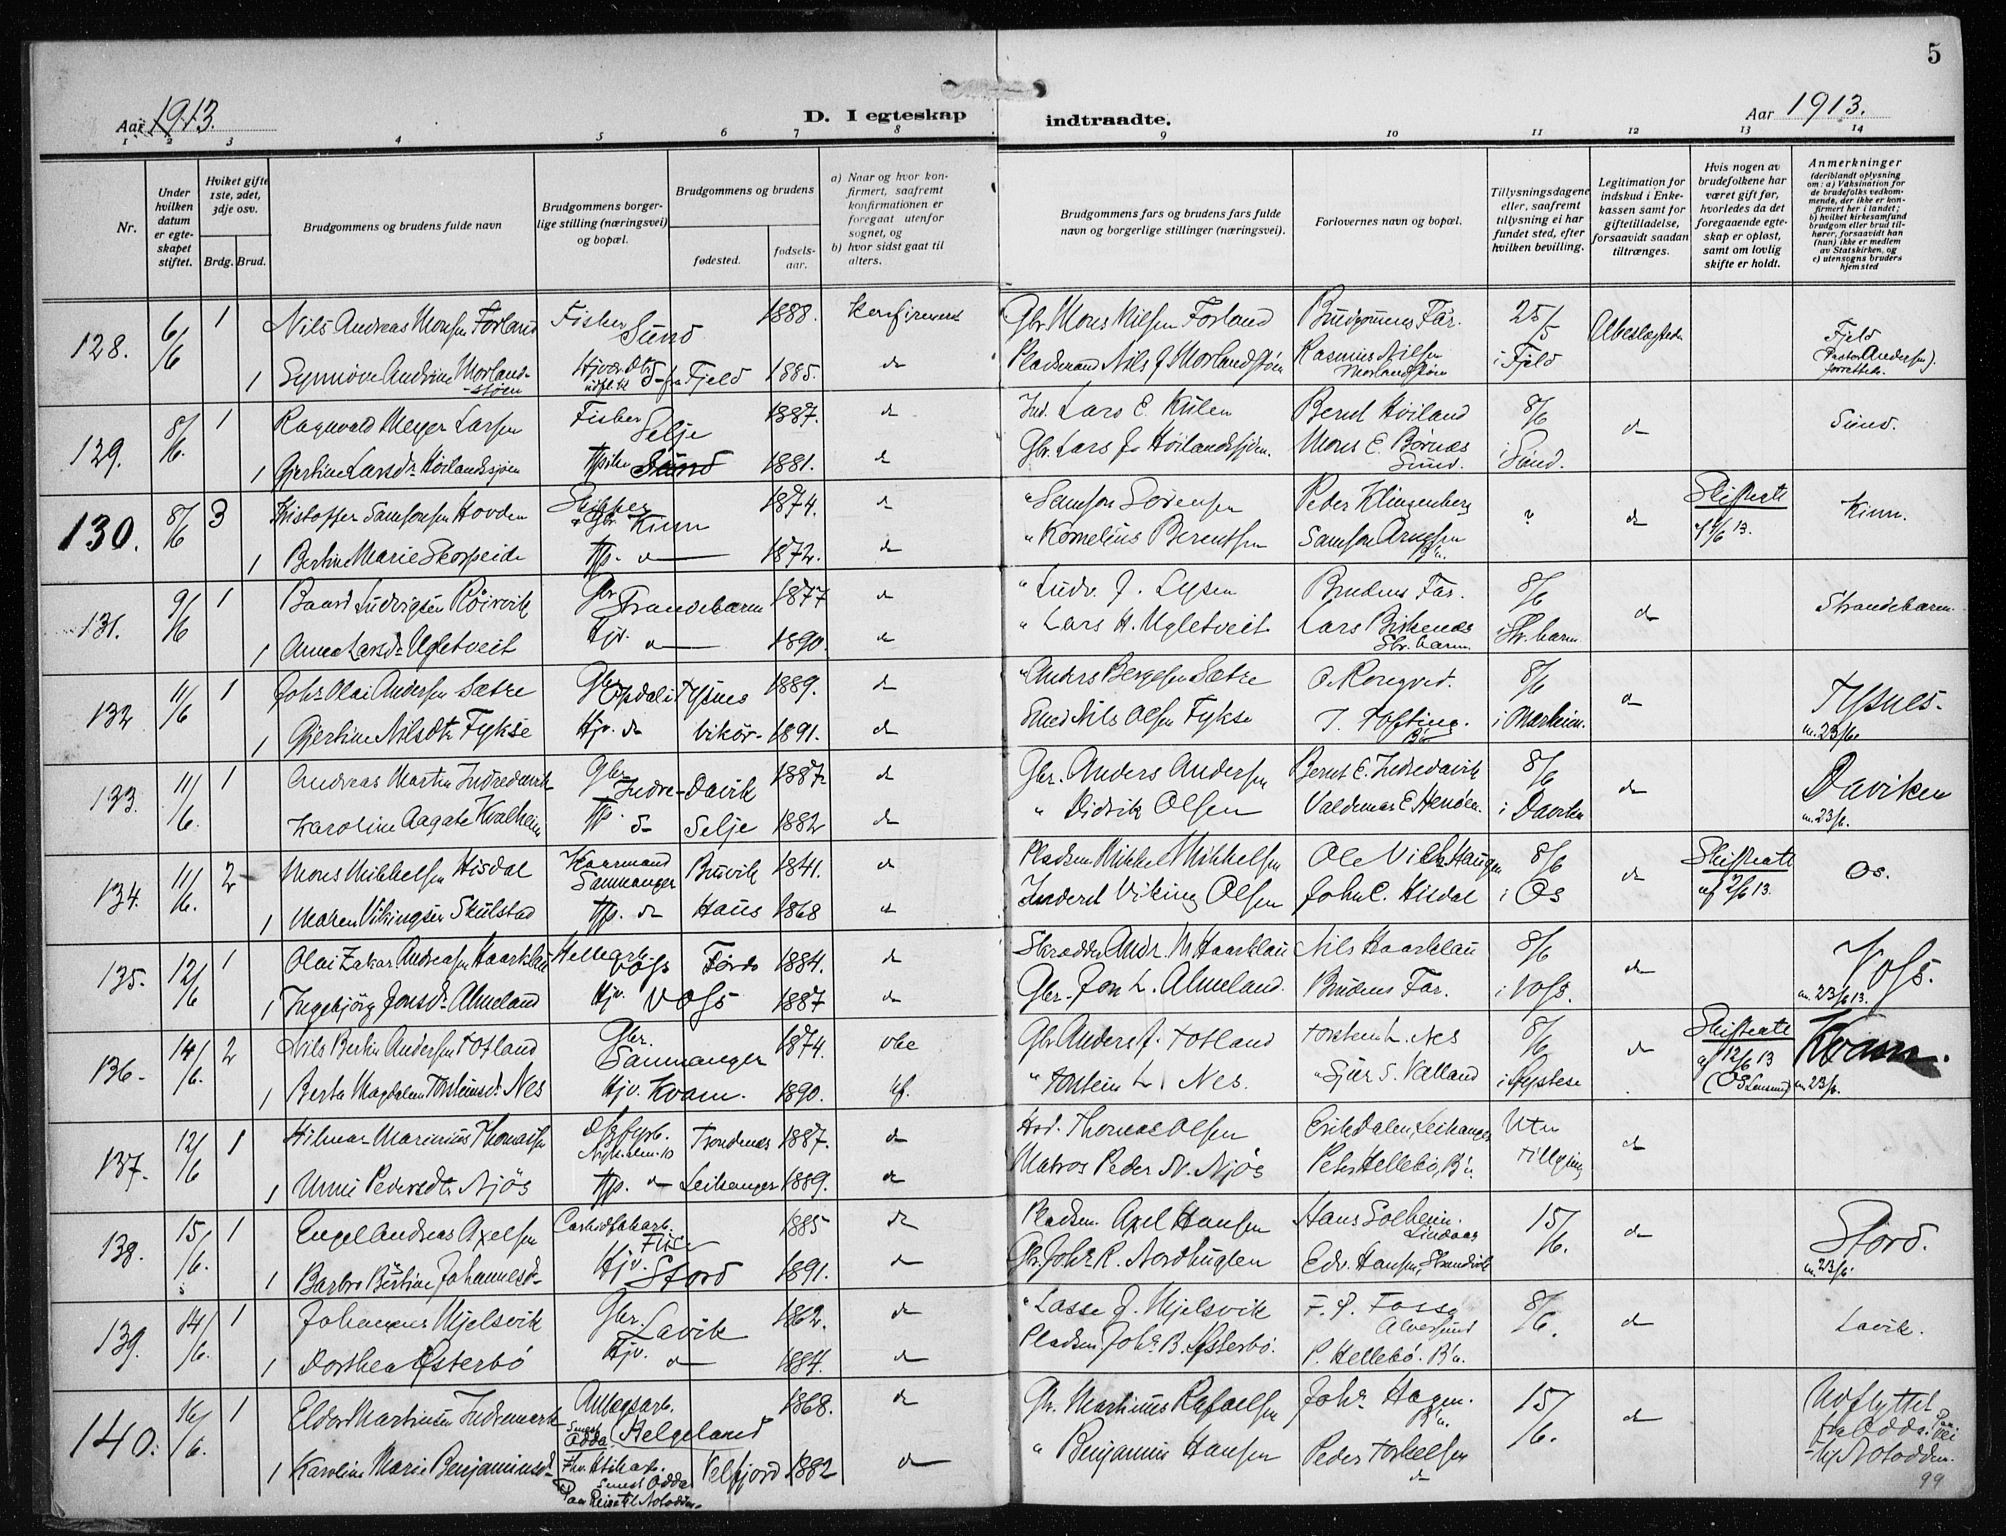 5
Aar 1913.
D. I egteskap
indtraadte.
Aar 1913.
1 2 3 4 5 6 7 8 9 10 11 12 13 14
Nr.
Under hvilken datum er egteskapet stiftet.
Hviket gifte 1ste, 2det, 3dje osv.
Brdg. Brud.
Brudgommens og brudens fulde navn
Brudgommens borgerlige stilling (næringsvei) og bopæl.
Brudgommens og brudens
fødested.
fødselsaar.
a) Naar og hvor konfirmert, saafremt konfirmationen er foregaat utenfor sognet, og
b) hvor sidst gaat til alters.
Brudgommens fars og brudens fars fulde navn og borgerlige stillinger (næringsvei).
Forlovernes navn og bopæl.
Tillysningsdagene eller, saafremt tillysning ei har fundet sted, efter hvilken bevilling.
Legitimation for indskud i Enkekassen samt for giftetilladelse, forsaavidt saadan tiltrænges.
Hvis nogen av brudefolkene har været gift før, hvorledes da det foregaaende egteskap er opløst, samt om lovlig skifte er holdt.
Anmerkninger
(deriblandt oplysning om: a) Vaksination for de brudefolks vedkommende, der ikke er konfirmert her i landet;
b) hvilket kirkesamfund brudgom eller brud tilhører, forsaavidt han (hun) ikke er medlem av Statskirken, og
c) utensogns bruders hjemsted
128. 6/6 1 Nils Andreas Monsen Forland Fisker Sund 1888. Konfirmert Gbr Mons Nilsen Forland Brudgommens Far. 25/5 Ubeslegtede Fjeld
1 Synnöve Andrine Morlandstöen Fjeld 1885. do Pladsmand Nils J Morlandstöen Rasmus Nilsen Morlandstöen i Fjeld (Pastor Andersen) forrettede.
129. 8/6 1 Ragnvald Meyer Larsen Fisker Selje 1887. do Ind. Lars E. Kulen Bernt Höiland 8/6 do Sund.
1 Gjertine Larsdr Höilandssjöen Sund 1881. do Gbr. Lars J. Höilandssjöen. Mons E. Börnæs Sund. i Sund.
130. 8/6 3 Kristoffer Samsonsen Hovden Skipper & Gbr Kinn 1874. do " Samson Sörensen Peder Klingenberg ? do Skifteatt. af 4/6 13. Kinn.
1 Bertine Marie Skorpeide Hp. do 1872. do " Kornelius Berentsen Samson Arnesen B'n.
131. 9/6 1 Baard Ludvigsen Röirvik Gbr Strandebarm 1877 do " Ludv. J. Lysen Brudens Far. 8/6 do Strandebarm.
1 Anna Larsdr Ugletveit Hjv. do 1890. do " Lars H. Ugletveit Lars Birkenæs Str.barm. i Str.barm.
132 11/6 1 Johs Olai Andersen Sætre Gbr Opdal i Tysnes 1889. do " Anders Bergesen Sætre O. Rongved. 8/6 do Tysnes.
1 Gjertine Nilsdtr Fykse Hjv. do Vikör. 1891. do Smed Nils Olsen Fykse J. Tofting. B'n i Norheim. m. 23/6.
133. 11/6. 1 Andreas Martin Indredavik Gbr. Indre-Davik 1887. do Gbr. Anders Andersen Bernt E. Indredavik 8/6 do Daviken
1 Karoline Aagate Kvalheim Hp. do Selje 1882 do " Didrik Olsen Valdemar E. Henden. i Daviken m. 23/6.
134. 11/6. 2 Mons Mikkelsen Hisdal Kaarmand Samnanger Bruvik 1841. do Pladsm Mikkel Mikkelsen Ole Nils Haugen 8/6 do Skifteatt. af 2/6 13. Os.
1 Maren Vikingsen Skulstad Hp. do Haus 1868 do Inderst Viking Olsen Johs C. Hisdal i Os
135. 12/6 1 Olai Zakar. Andreasen Haarklau Voss Förde 1884. do Skrædder Andr. M Haarklau Nils Haarklau 8/6 do Voss.
1 Ingebjörg Jonsdr Almeland Hjv. Voss 1887 do Gbr. Jon L. Almeland. Brudens Far. i Voss. m. 23/6 13.
136. 14/6. 2 Nils Bertin Andersen Totland Gbr. Samnanger 1874. Gbr Anders J. Totland Torstein L. Nes 8/6 do Skifteatt. af 12/6 13 Kvam.
1 Berta Magdalene Torsteinsdr Nes Hjv. Kvam. 1890. " Torstein L. Nes. Sjur S. Valland i Öystese (Os Lensmd) m. 23/6.
137. 12/6 1 Hilmar Marinius Thomassen Trondenæs 1887. do Hrd. Thomas Olsen Erik Dalen, Leikanger Uten do
1 Unni Pedersdtr Njös Hp. do Leikanger 1889. do Matros Peder N. Njös Peter Hellebö, B'n. tillysning
138. 15/6. 1 Engel Andreas Axelsen Carbidfabarb. 1885 do Pladsm. Axel Hansen Hans Solheim. Lindaas 15/6. do Stord.
1 Barbro Bertine Johannesdr Hjv. Stord 1891. do Gbr. Johs R. Nordhuglen Edv. Hansen, Strandvik m. 23/6.
139. 14/6. 1 Johannes Mjelsvik Gbr. Lavik 1862. do " Lasse J. Mjelsvik F. P. Fosse Alversund 8/6. do Lavik.
1 Dorthea Österbö Hjv. do 1884. do Pladsm. Johs B. Österbö. P. Hellebö. B'n.
140. 16/6. 1 Eldor Martinsen Indremark Anlægsarb. Odda (Helgeland 1868. do Gbr. Martinus Rafaelsen Johs Hagen. B'n. 15/6. do Utflyttet fra Odda. Paa vei
1 Karoline Marie Benjaminsdr Odda Velfjord 1882 do " Benjamin Hansen Peder Torkelsen do til Notodden.
Paa Reise til Notodden.
99